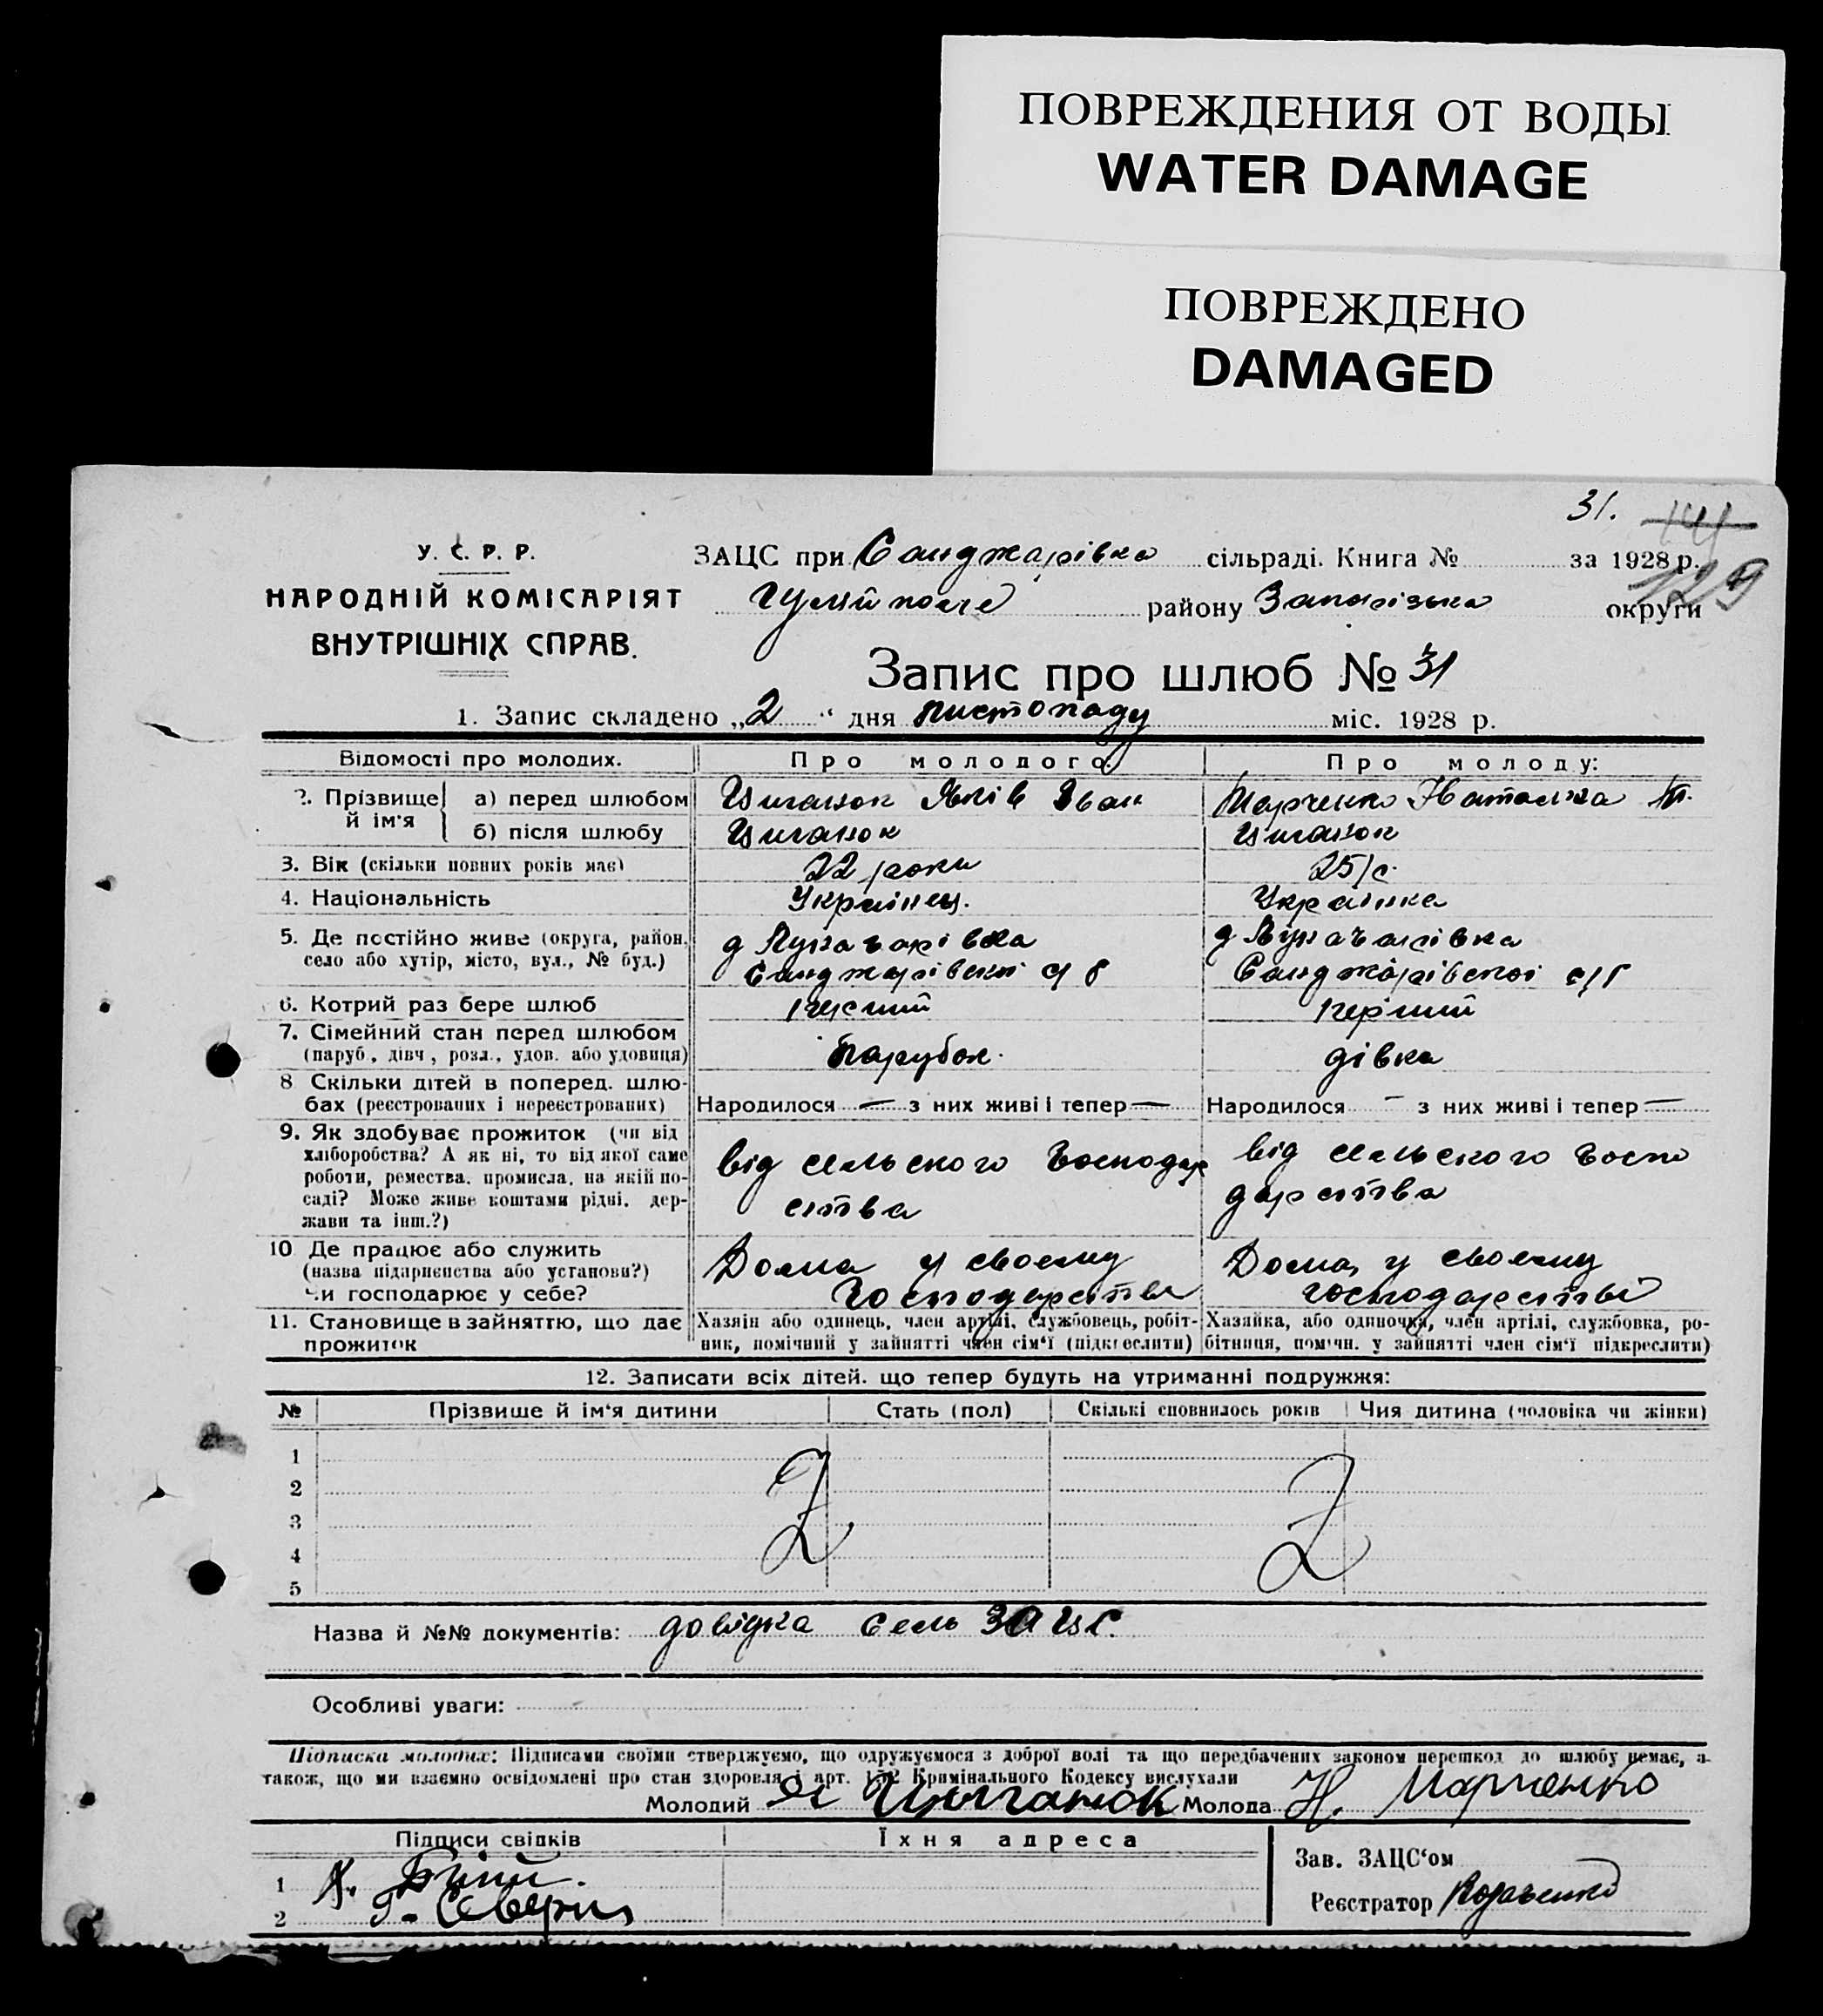 ПОВРЕЖДЕНИЯ ОТ ВОДЫ
WATER DAMAGE
ПОВРЕЖДЕНО
DAMAGED
31. 141
129
У. С. Р. Р.
НАРОДНІЙ КОМІСАРІЯТ
ВНУТРІШНІХ СПРАВ.
ЗАЦС при Санджарівка сільраді. Книга № за 1928 р.
Гуляйполе району Запорізька округи
Запис про шлюб № 31
1. Запис складено „2“ дня листопаду міс. 1928 р.
Відомості про молодих. Про молодого: Про молоду:
2. Прізвище й ім'я
а) перед шлюбом Циганок Яків Іван Марченко Наталка
б) після шлюбу Циганок Циганок
3. Вік (скільки повних років має) 22 роки 25 р.
4. Національність Українец. Українка
5. Де постійно живе (округа, район, село або хутір, місто, вул., № буд.)
д Луначарівка
Санджарівської с/р
д Луначарівка
Санджарівської с/р
6. Котрий раз бере шлюб перший перший
7. Сімейний стан перед шлюбом
(паруб., дівч., розл., удов. або удовиця) Парубок. дівка
8 Скільки дітей в поперед. шлю-
бах (реєстрованих і нереєстрованих) Народилося — з них живі і тепер — Народилося — з них живі і тепер —
9. Як здобуває прожиток (чи від
хліборобства? А як ні, то від якої саме
роботи, ремества, промисла, на якій по-
саді? Може живе коштами рідні, дер-
жави та інш.?)
від сельского господар
ства
від сельского госпо
дарства
10 Де працює або служить
(назва підприємства або установи?)
чи господарює у себе?
Дома у своему
Господарстви
Дома, у своему
господарстві
11. Становище в зайняттю, що дає
прожиток
Хазяїн або одинець, член артілі, службовець, робіт-
ник, помічний у зайнятті член сім‘ї (підкреслити)
Хазяйка, або одиночка, член артілі, службовка, ро-
бітниця, помічн. у зайнятті член сім‘ї підкреслити)
12. Записати всіх дітей. що тепер будуть на утриманні подружжя:
№ Прізвише й ім‘я дитини Стать (пол) Скількі сповнилось років Чия дитина (чоловіка чи жінки)
1
2
3
4
5
Назва й №№ документів: довідка Сель ЗАЦС.
Особливі уваги:
Підписка молодих: Підписами своїми стверджуємо, що одружуємося з доброї волі та що передбачених законом перешкод до шлюбу немає, а
також, що ми взаємно освідомлені про стан здоровля і арт. 152 Кримінального Кодексу вислухали
Молодий Як Цыганок Молода Н. Марченко
Підписи свідків Їхня адреса
1
2
Зав. ЗАЦС‘ом
Реєстратор